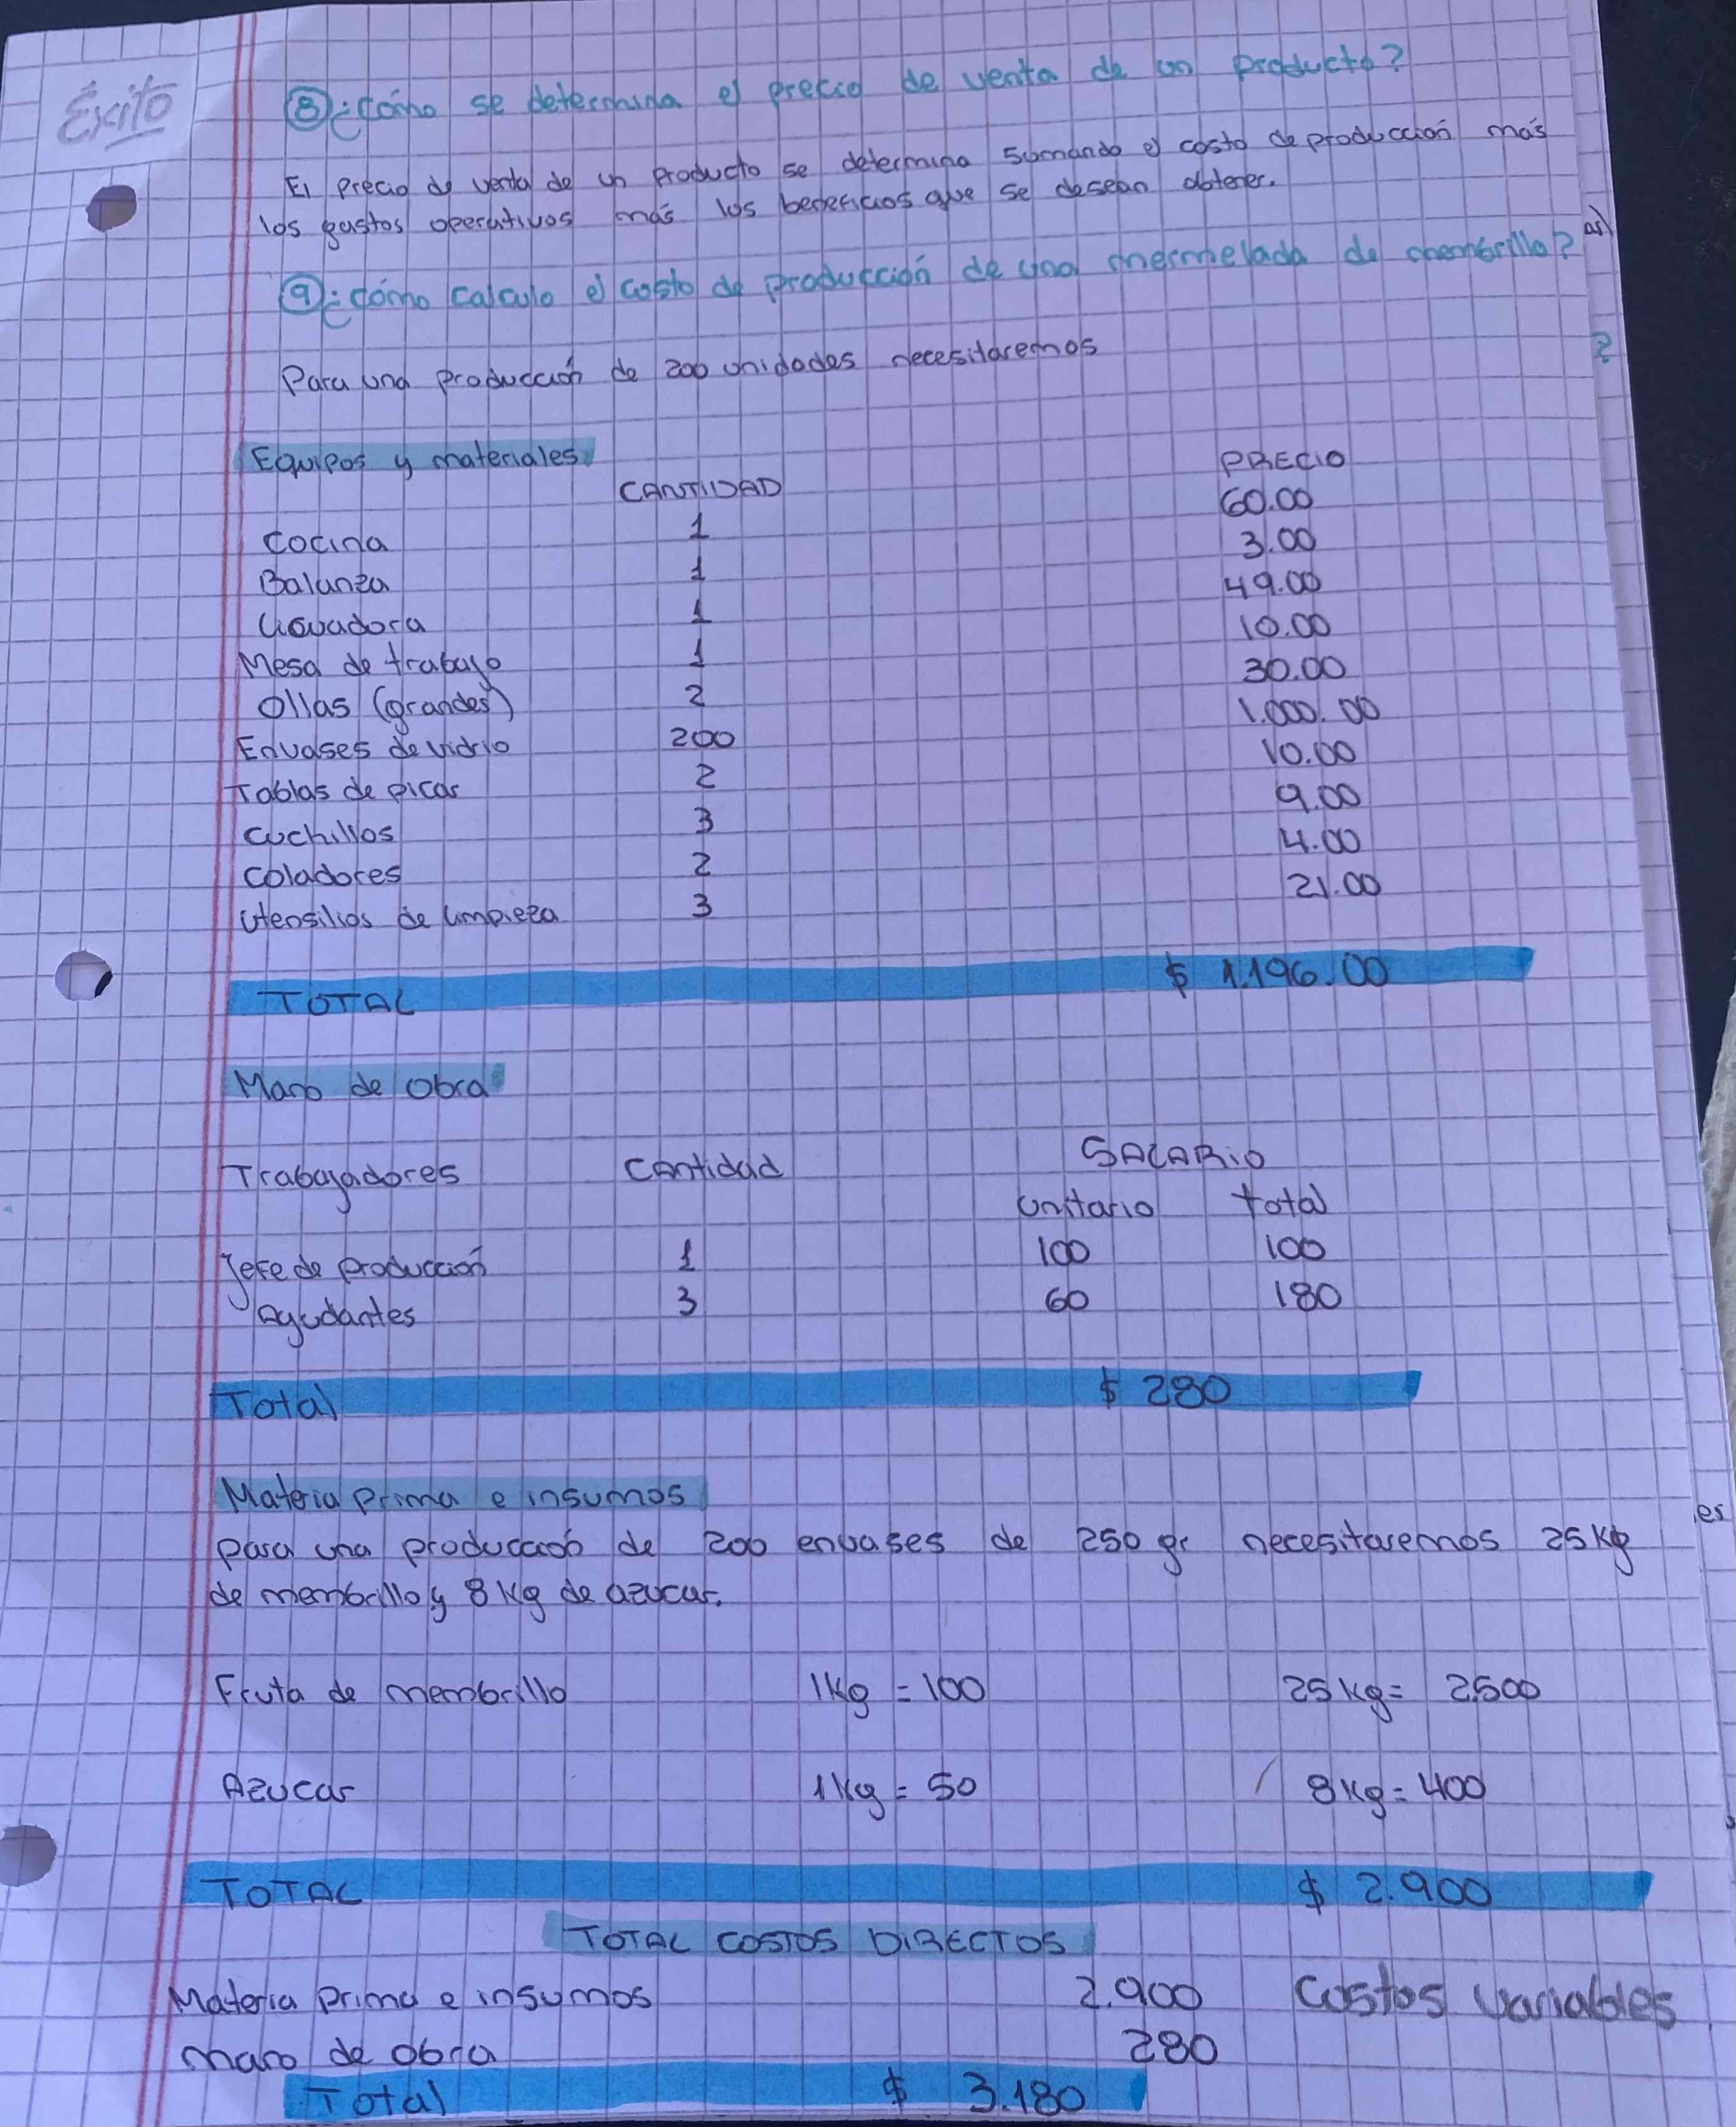 Éxito
⑧ ¿Cómo se determina el precio de venta de un producto?
El precio de venta de un producto se determina sumando el costo de producción más
los gastos operativos más los beneficios que se desean obtener.
as)
⑨ ¿Cómo calculo el costo de producción de una mermelada de membrillo?
?
Para una producción de 200 unidades necesitaremos
Equipos y materiales
CANTIDAD PRECIO
Cocina 1 60.00
Balanza 1 3.00
Licuadora 1 49.00
Mesa de trabajo 1 10.00
Ollas (grandes) 2 30.00
Envases de vidrio 200 1.000.00
Tablas de picar 2 10.00
Cuchillos 3 9.00
Coladores 2 4.00
Utensilios de limpieza 3 21.00
TOTAL $ 1.196.00
Mano de obra
Trabajadores Cantidad SALARIO
unitario total
Jefe de producción 1 100 100
Ayudantes 3 60 180
Total $ 280
Materia prima e insumos
es
para una producción de 200 envases de 250 gr necesitaremos 25 Kg
de membrillo y 8 Kg de azucar.
Fruta de membrillo 1Kg = 100 25 Kg = 2.500
Azucar 1Kg = 50 8Kg = 400
TOTAL $ 2.900
TOTAL COSTOS DIRECTOS
Materia prima e insumos 2.900 Costos variables
mano de obra 280
Total $ 3.180